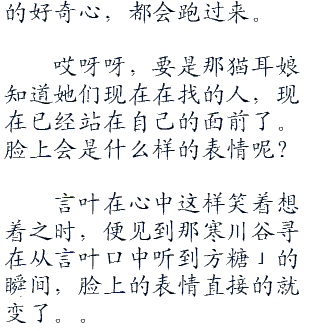 的好奇心，都会跑过来。
哎呀呀，要是那猫耳娘
知道她们现在在找的人，现
在已经站在自己的面前了。
脸上会是什么样的表情呢？
言叶在心中这样笑着想
着之时，便见到那寒川谷寻
在从言叶口中听到方糖」的
瞬间，脸上的表情直接的就
变了。。